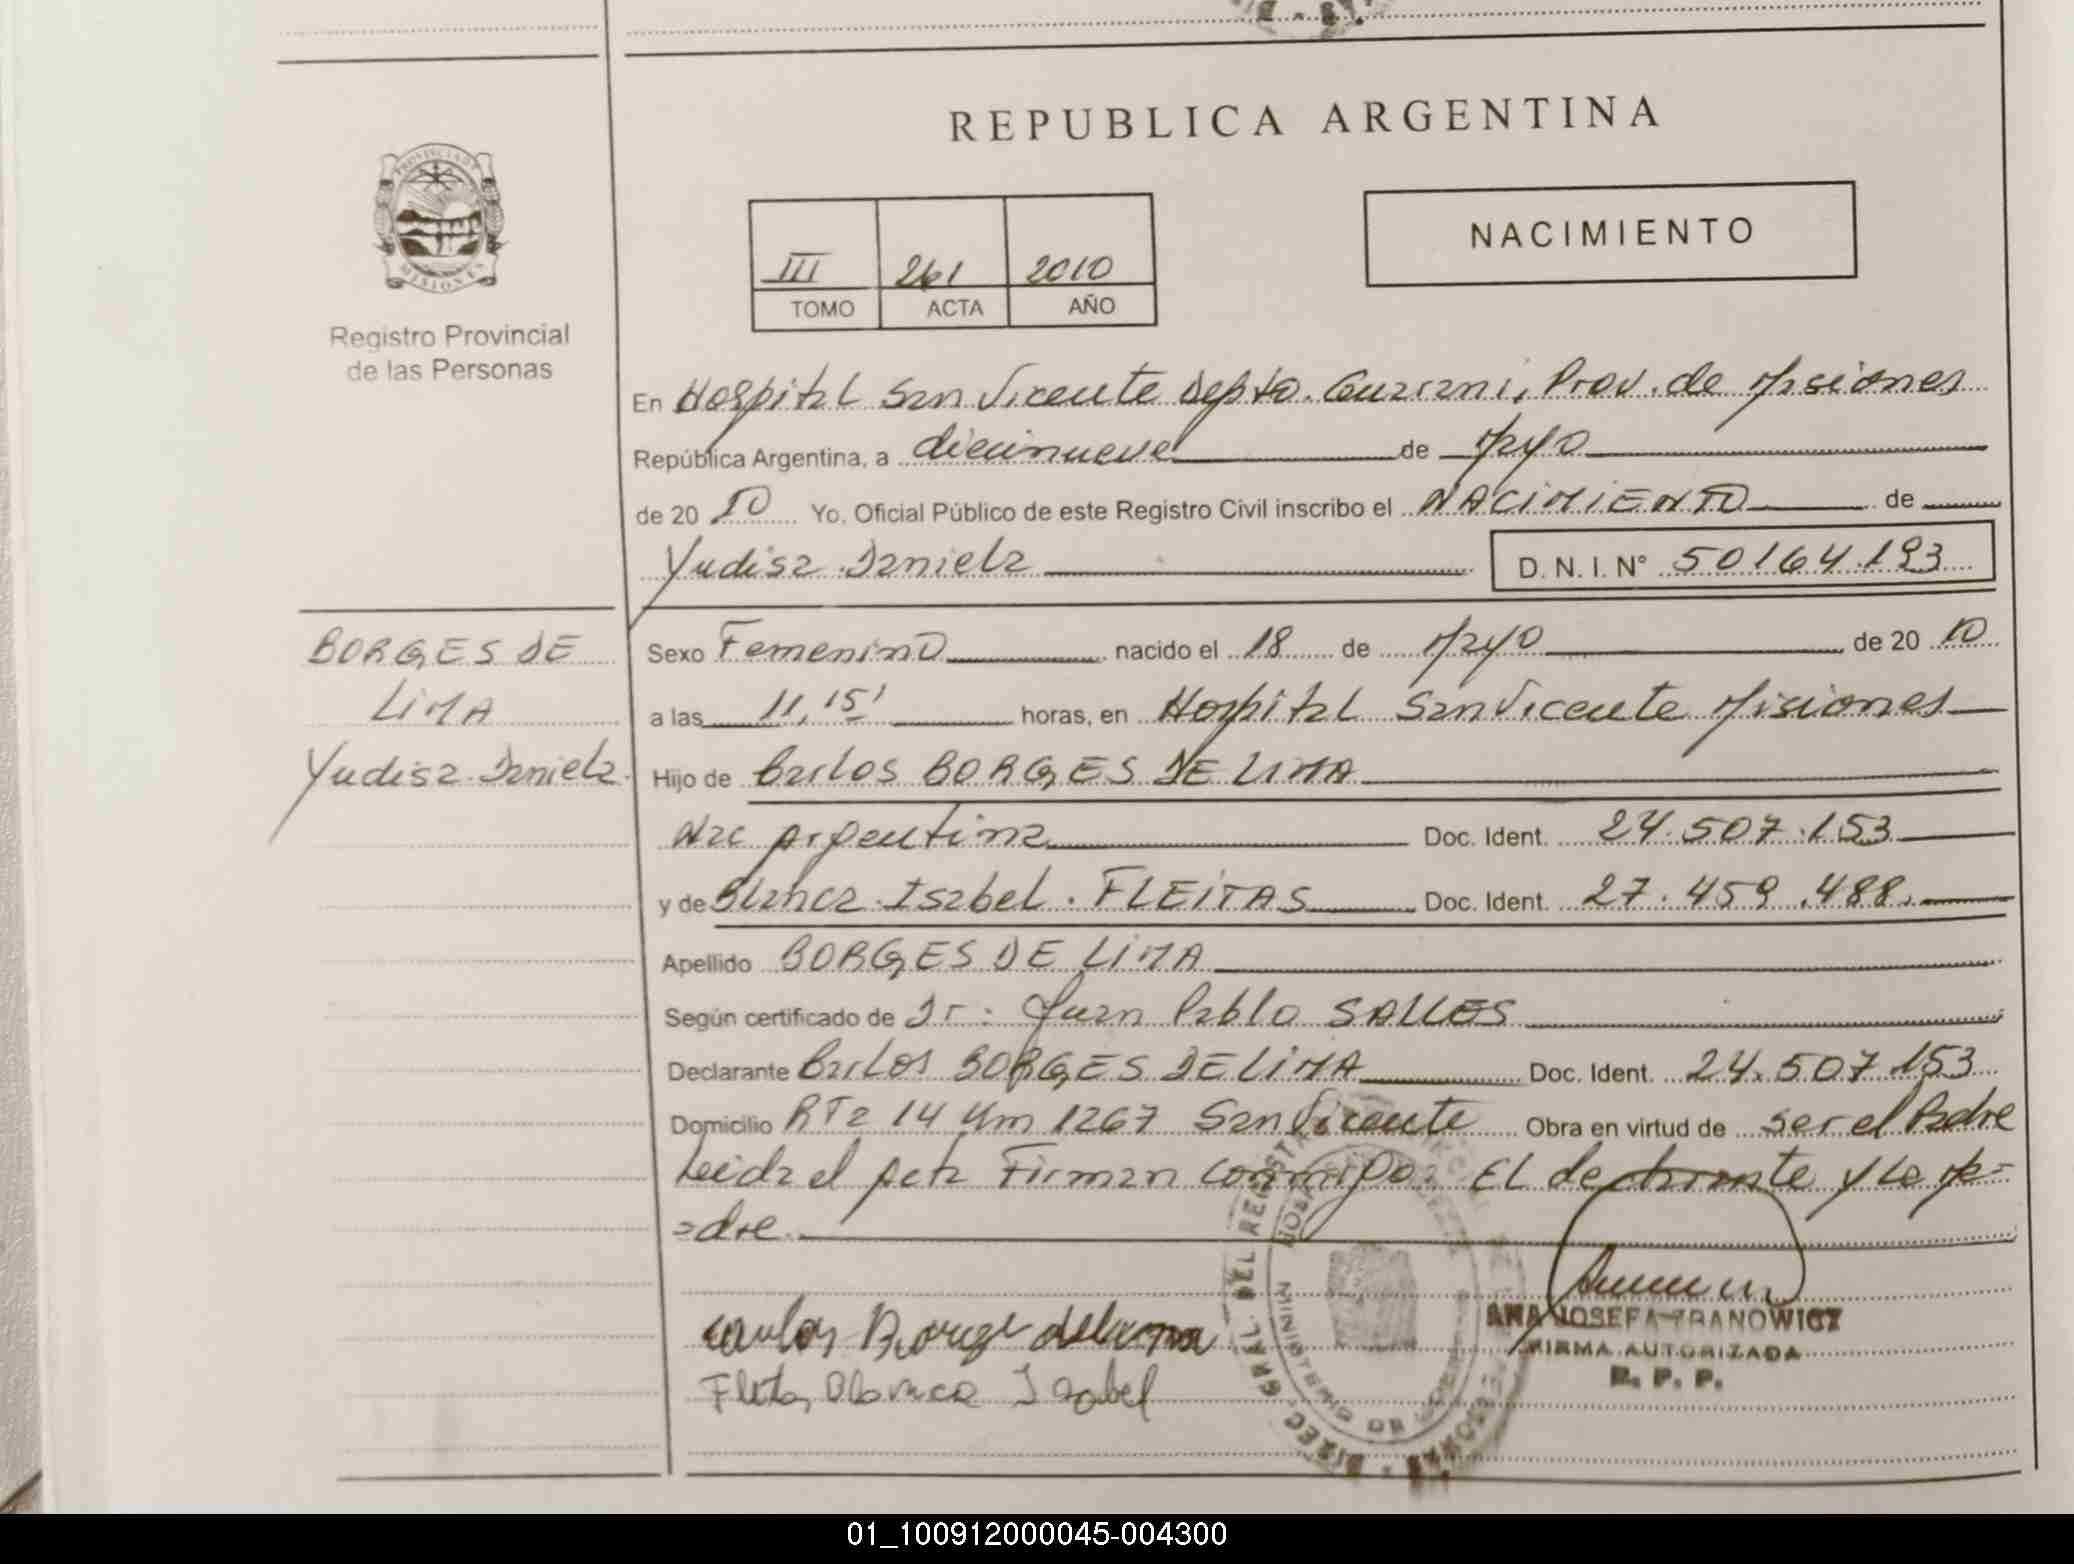 REPUBLICA ARGENTINA
PROVINCIA DE MISIONES
Registro Provincial
de las Personas
III 261 2010
TOMO ACTA AÑO
NACIMIENTO
En Hospital San Vicente Depto. Guarani, Prov. de Misiones
República Argentina, a diecinueve de Mayo
de 20 10 Yo, Oficial Público de este Registro Civil inscribo el NACIMIENTO de
Yudisa Daniela D. N. I. Nº 50164.193
BORGES DE
LIMA
Yudisa Daniela
Sexo Femenino nacido el 18 de Mayo de 20 10
a las 11,15' horas, en Hospital San Vicente Misiones
Hijo de Carlos BORGES DE LIMA
Nac Argentina Doc. Ident. 24.507.153
y de Blanca Isabel. FLEITAS Doc. Ident. 27.459.488.
Apellido BORGES DE LIMA
Según certificado de Dr: Juan Pablo SALLES
Declarante Carlos BORGES DE LIMA Doc. Ident. 24.507.153
Domicilio RTa 14 Km 1267 San Vicente Obra en virtud de ser el Padre
Leida el Acta Firman conmigo: El declarante y la Ma=
=dre.
Carlos Borge delima
Fleita Blanca Isabel
ANA JOSEFA ZRANOWICZ
FIRMA AUTORIZADA
R. P. P.
DIREC. GRAL. DEL REGISTRO
MINISTERIO DE GOBIERNO
01_100912000045-004300